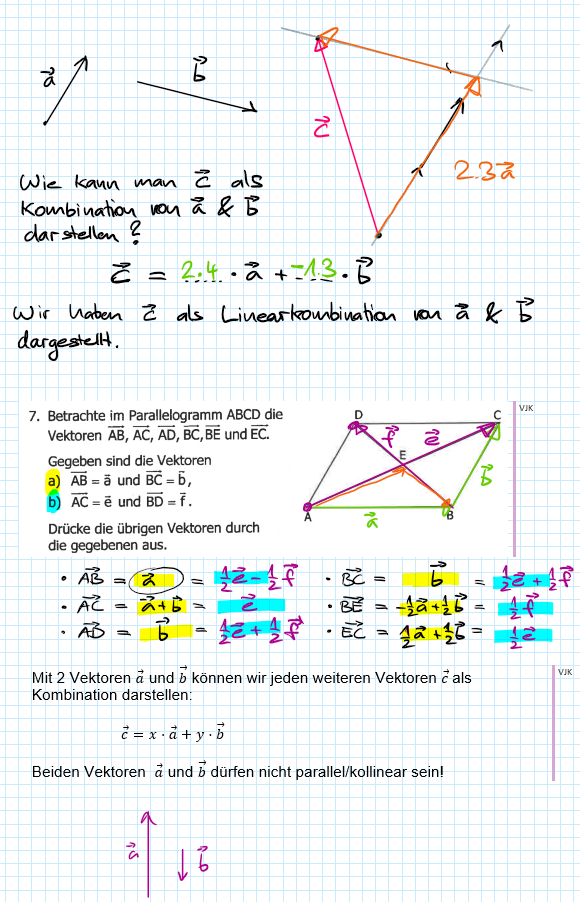 a⃗
b⃗
c⃗
2.3a⃗
Wie kann man c⃗ als
Kombination von a⃗ & b⃗
darstellen?
c⃗ = 2.4 · a⃗ + -1.3 · b⃗
Wir haben c⃗ als Linearkombination von a⃗ & b⃗
dargestellt.
7. Betrachte im Parallelogramm ABCD die
Vektoren A͞B⃗, AC⃗, AD⃗, BC⃗, BE⃗ und EC⃗.
Gegeben sind die Vektoren
a) AB⃗ = a⃗ und BC⃗ = b⃗,
b) AC⃗ = e⃗ und BD⃗ = f⃗.
Drücke die übrigen Vektoren durch
die gegebenen aus.
D C
f⃗ e⃗
E
b⃗
A a⃗ B
VJK
• AB⃗ = a⃗ = ½e⃗ - ½f⃗ • BC⃗ = b⃗ = ½e⃗ + ½f⃗
• AC⃗ = a⃗ + b⃗ = e⃗ • BE⃗ = -½a⃗ + ½b⃗ = ½f⃗
• AD⃗ = b⃗ = ½e⃗ + ½f⃗ • EC⃗ = ½a⃗ + ½b⃗ = ½e⃗
Mit 2 Vektoren a⃗ und b⃗ können wir jeden weiteren Vektoren c⃗ als
Kombination darstellen:
c⃗ = x · a⃗ + y · b⃗
Beiden Vektoren a⃗ und b⃗ dürfen nicht parallel/kollinear sein!
VJK
a⃗ b⃗